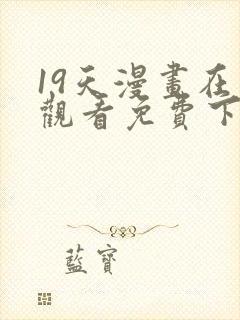 19天漫畫在
觀看免費下
藍寶